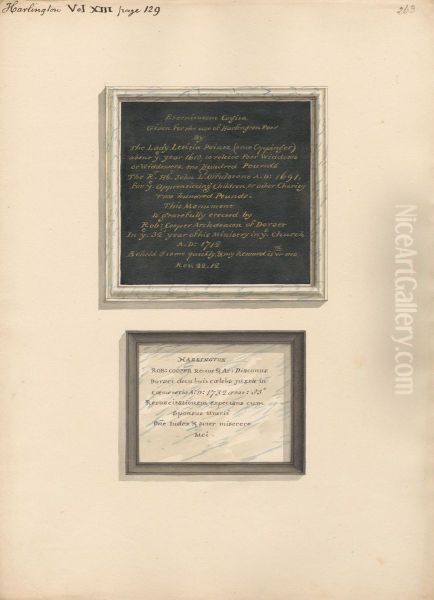 Harlington Vol XIII page 129
263
Given for the use of Harlington Poor
By
The Lady Letitia Pointz (once Cypinfer)
about yͤ year 1610, to relieve Poor Widdows
or Widdowers one Hundred Pounds
The R. Hb. John L. Ossulstone A.D: 1691.
For yͤ Apprenticeing Children, or other Charity
Two hundred Pounds.
This Monument
Is gratefully erected by
Rob: Cooper Archdeacon of Dorset
In yͤ 32 year of his Ministry in yͤ Church
A.D: 1712
Behold I come quickly & my Reward is wth me
Rev. 22. 12
HARLINGTON
ROB: COOPER Rector & Ar: Diaconus
Dorset in
A:D: 1732 ætat: 83
Resuscitationem expectans cum
Sponsus
Dne Iudex & miserere
Mei
NiceArtGallery.com